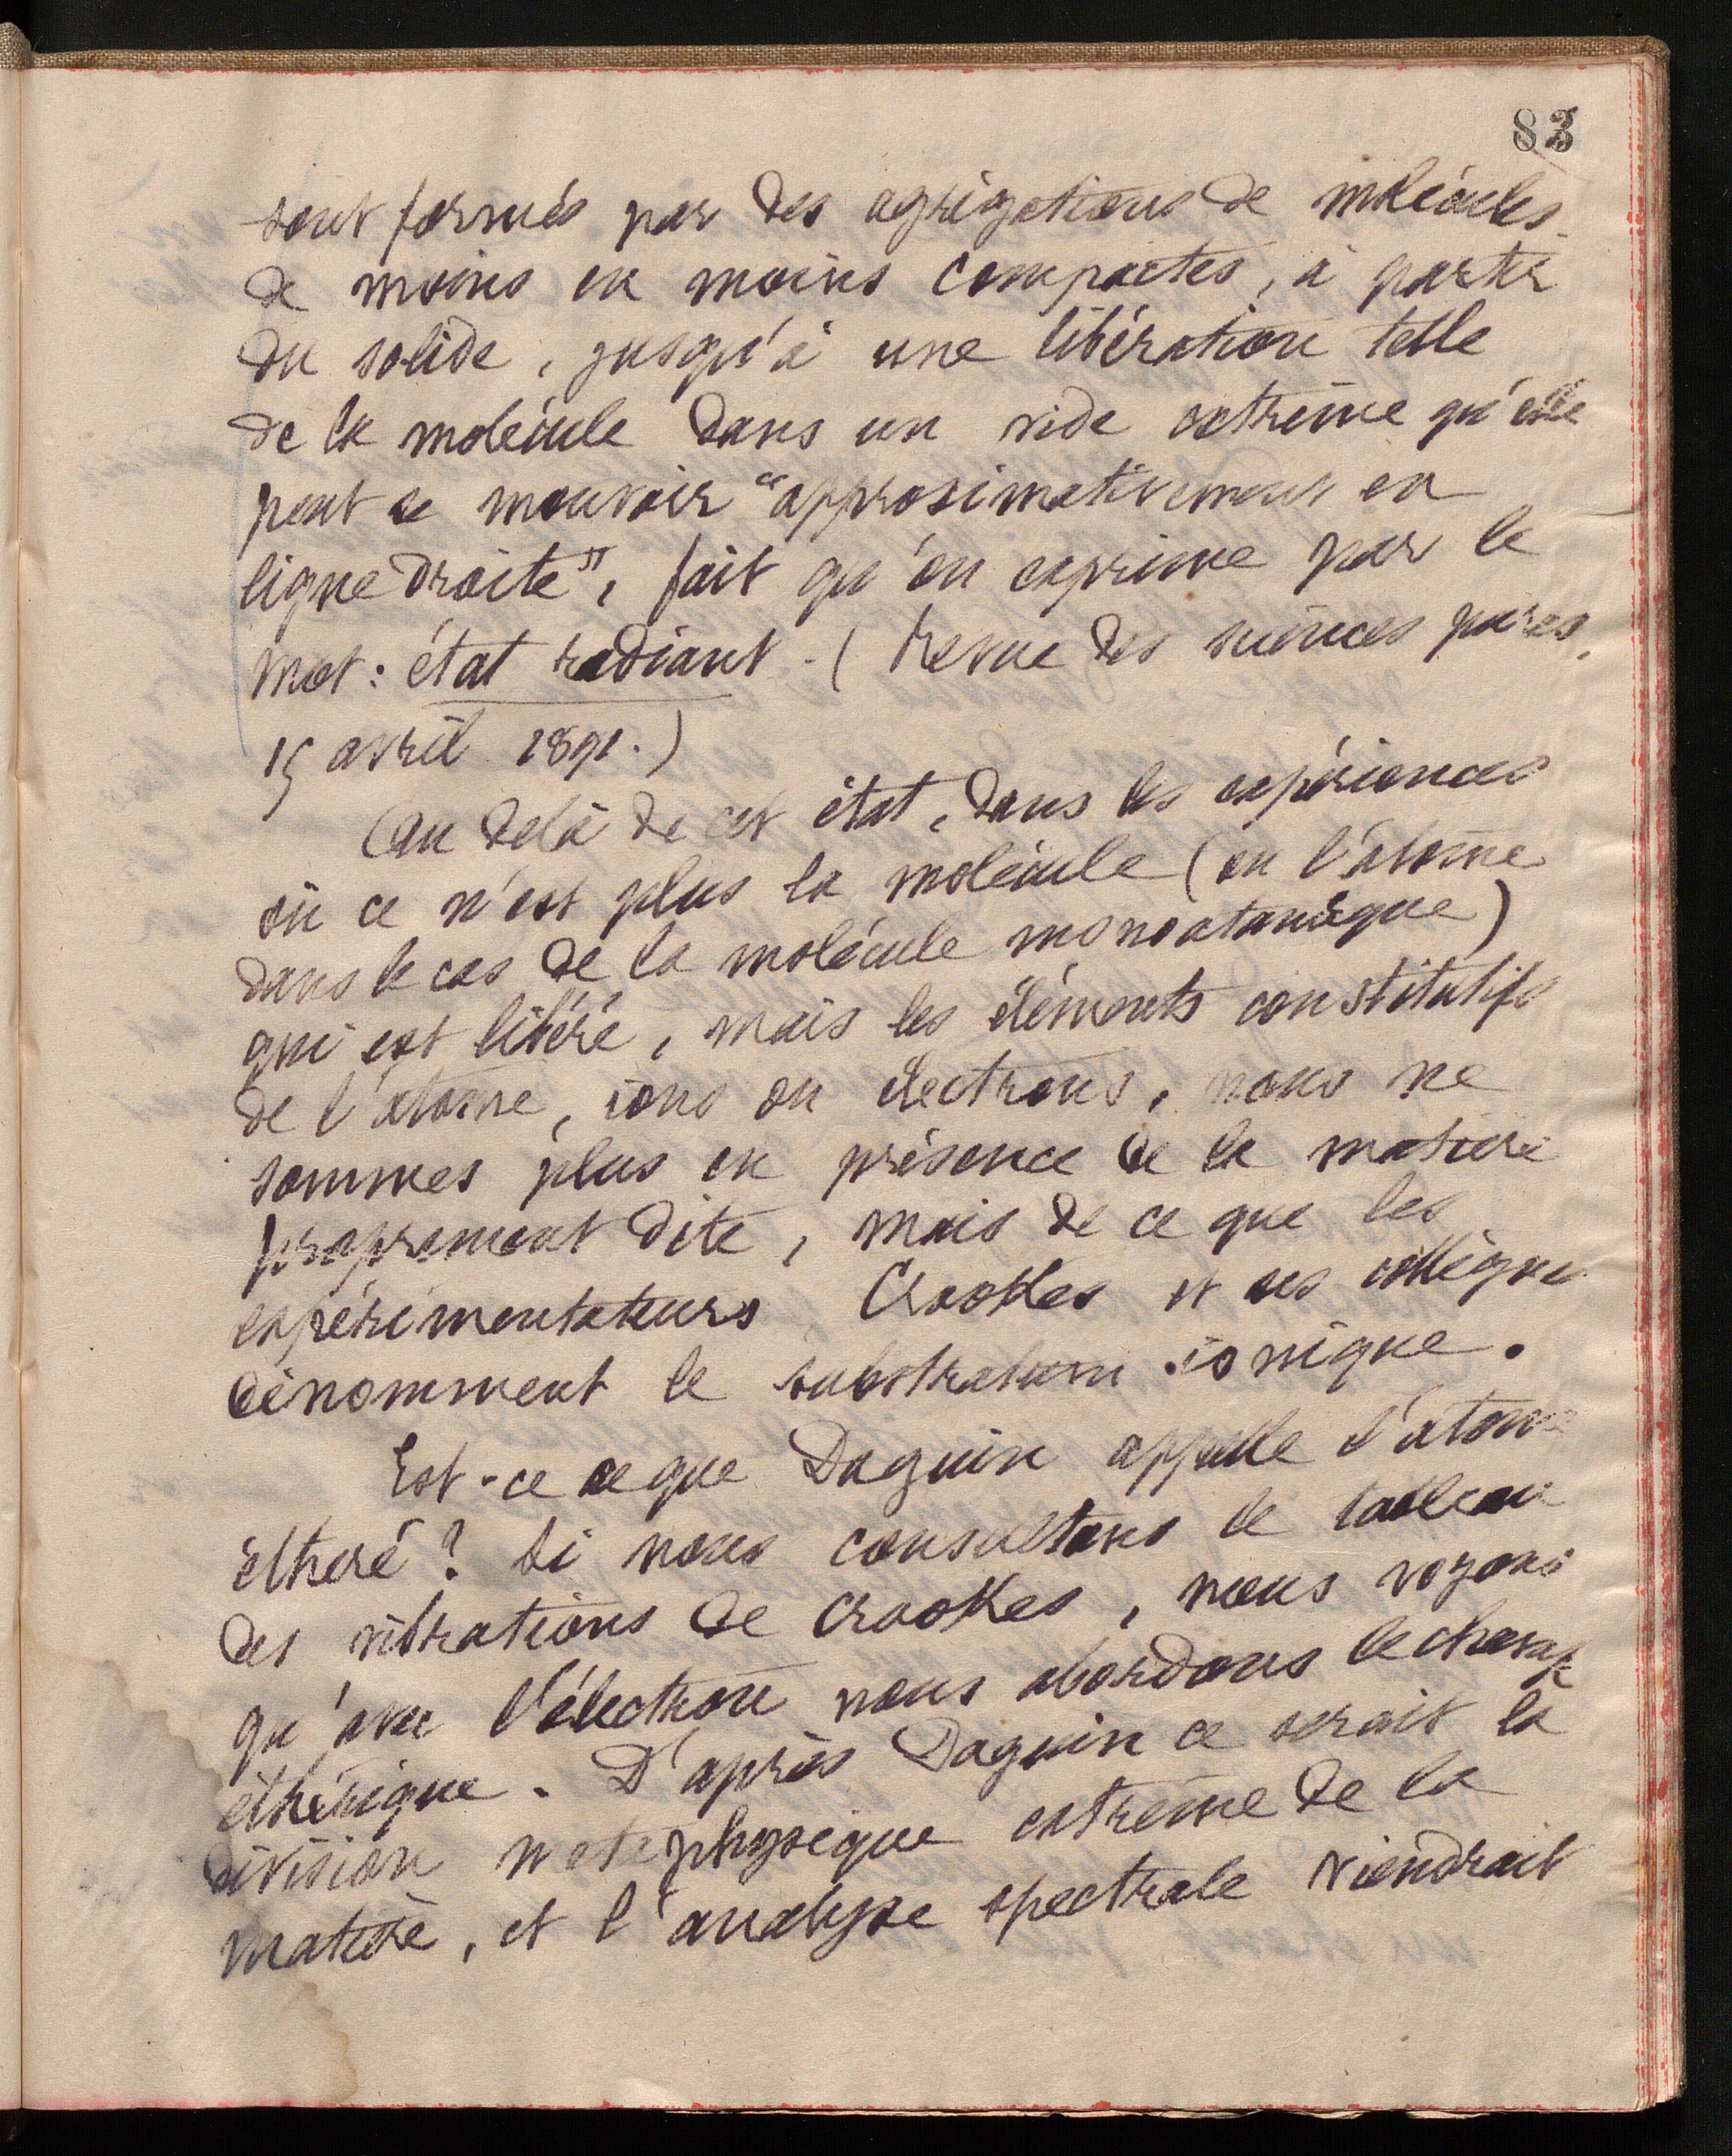 83
sont formés par des agrégations de molécules
de moins en moins compactes, à partir
du solide, jusqu'à une libération telle
de la molécule dans un vide extrême qu'elle
peut se mouvoir "approximativement en
ligne droite", fait qu'on exprime par le
mot : état radiant. (Revue des sciences pures,
15 avril 1891.)
Au delà de cet état, dans les expériences
où ce n'est plus la molécule (ou l'atome
dans le cas de la molécule monoatomique)
qui est libéré, mais les éléments constitutifs
de l'atome, ions ou électrons, nous ne
sommes plus en présence de la matière
proprement dite, mais de ce que les
expérimentateurs Crookes et ses collègues
dénomment le substratum ionique.
Est-ce ce que Daguin appelle l'atome
étheré ? Si nous consultons le tableau
des vibrations de Crookes, nous voyons
qu'avec l'électron nous abordons le champ
éthérique. D'après Daguin ce serait la
division métaphysique extrême de la
matière, et l'analyse spectrale viendrait